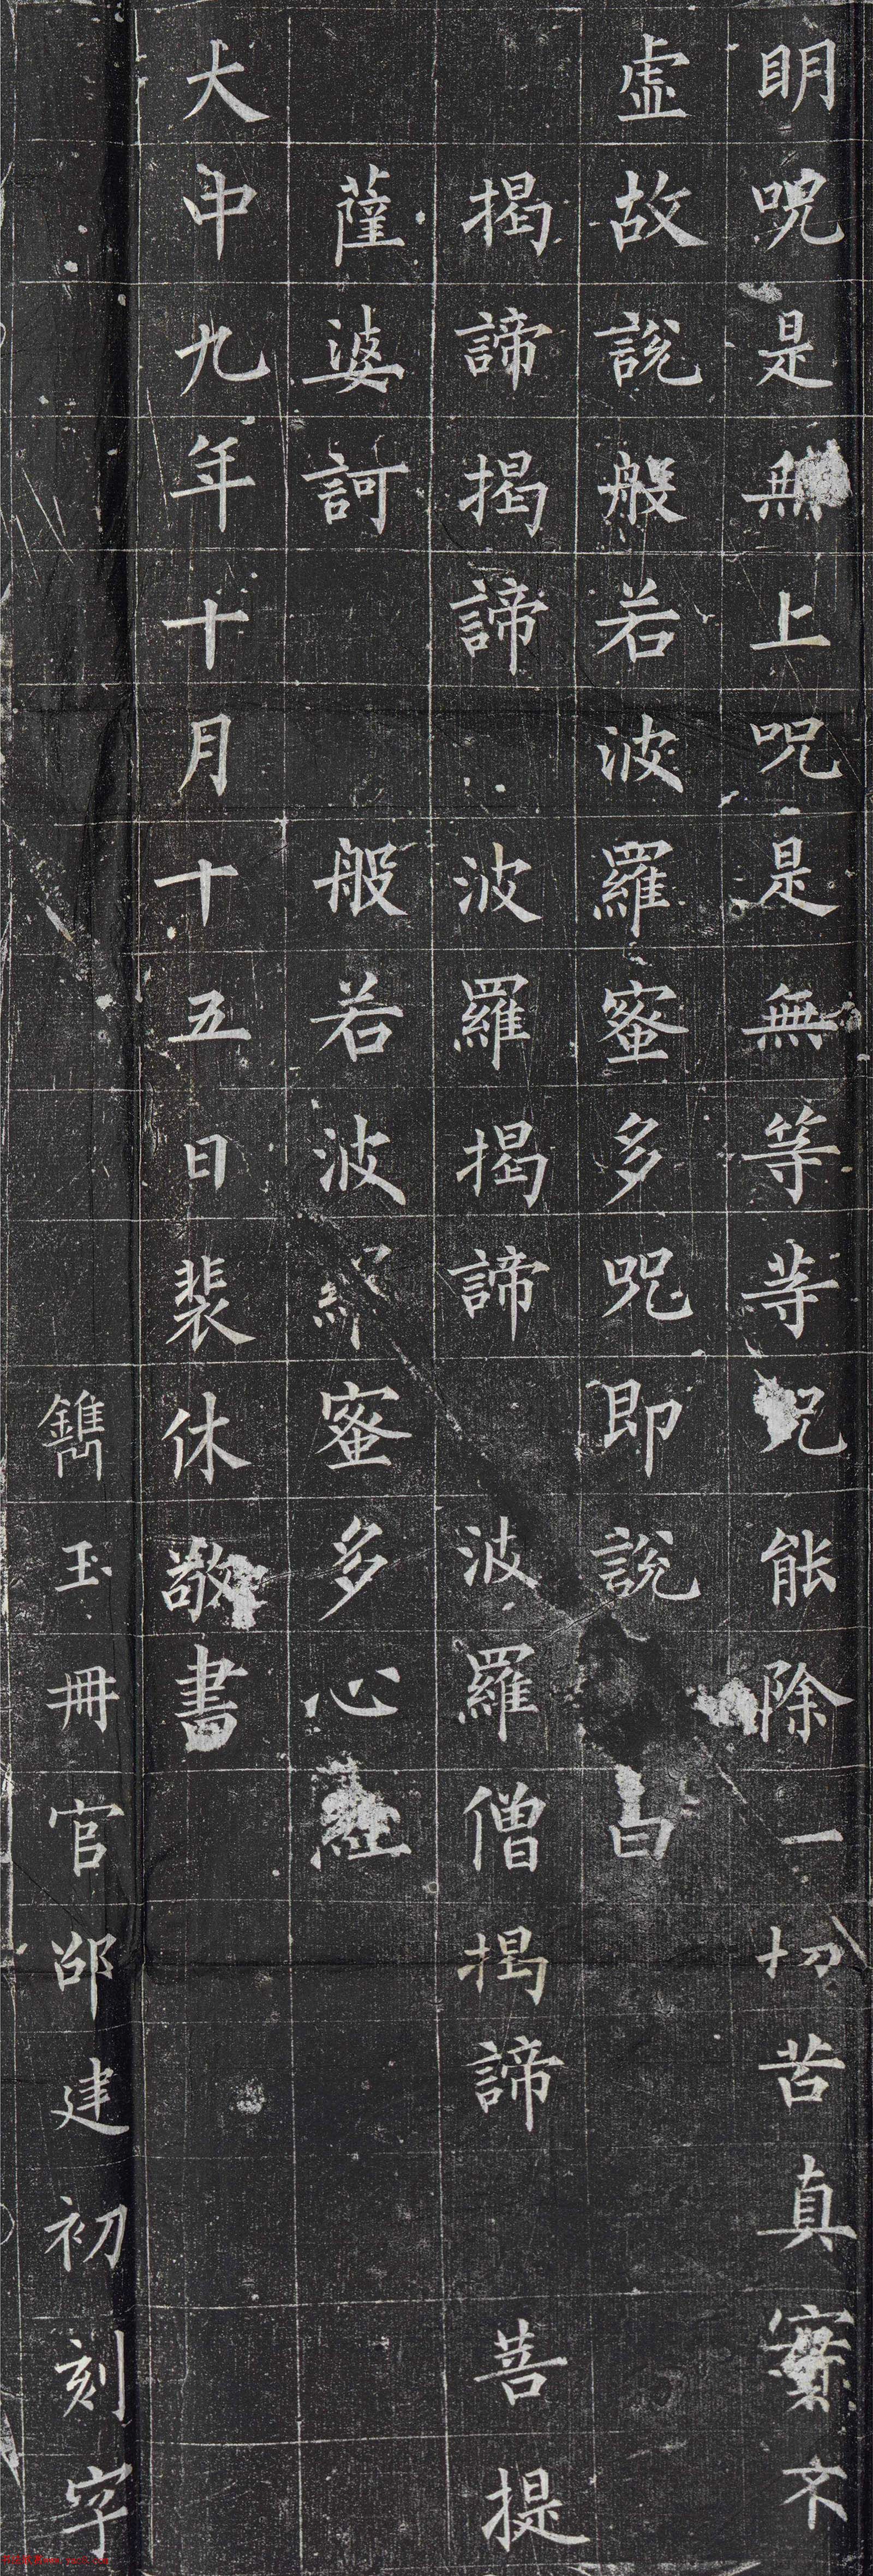 明呪是無上呪是無等等呪能除一切苦真實不
虛故說般若波羅蜜多呪即說曰
揭諦揭諦 波羅揭諦 波羅僧揭諦 菩提
薩婆訶 般若波羅蜜多心經
大中九年十月十五日裴休敬書
鐫玉冊官邵建初刻字